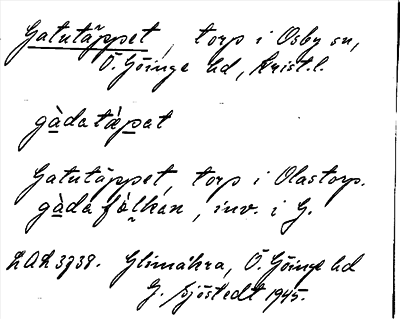 Gatutäppet, torp i Osby sn,
Ö. Göinge hd, Krist. l.
gàdatæ̀pat
Gatutäppet, torp i Olastorp.
gàdafålkan, inv. i G.
LAL 3738. Glimåkra, Ö. Göinge hd
G. Sjöstedt 1945.